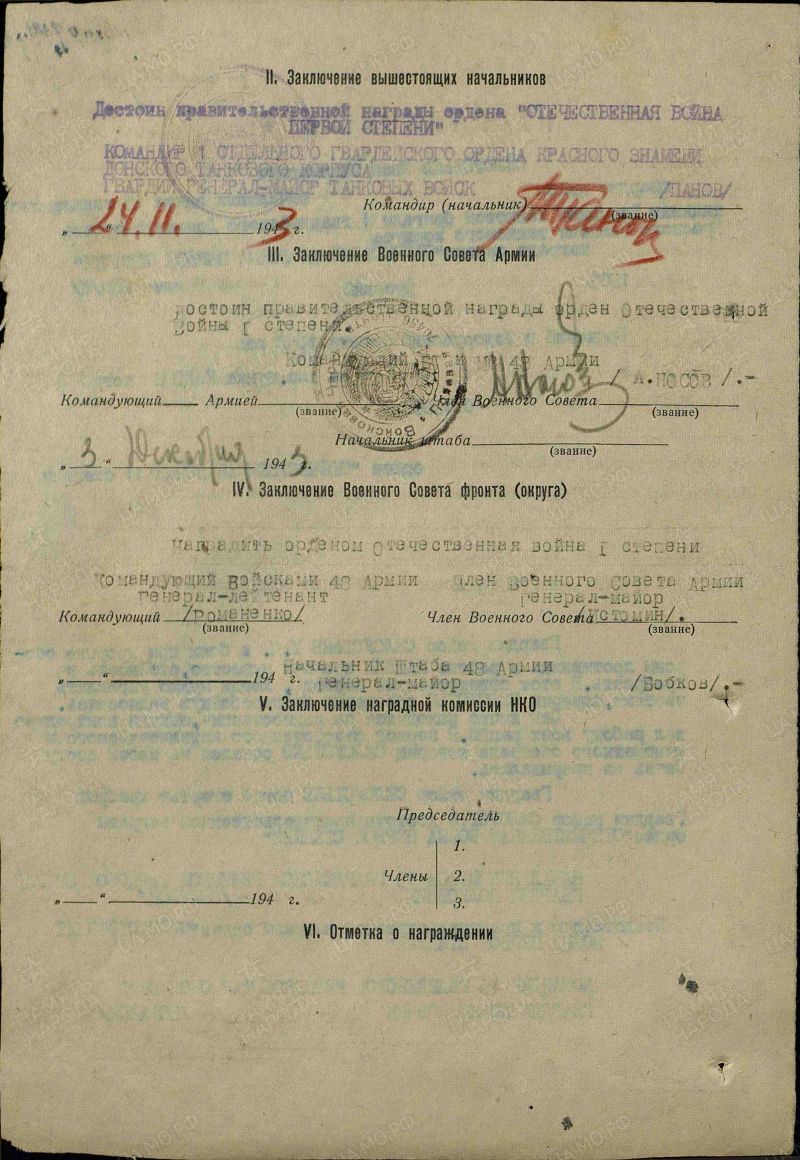 II. Заключение вышестоящих начальников
Достоин правительственной награды ордена "ОТЕЧЕСТВЕННАЯ ВОЙНА
ПЕРВОЙ СТЕПЕНИ"
КОМАНДИР 1 ОТДЕЛЬНОГО ГВАРДЕЙСКОГО ОРДЕНА КРАСНОГО ЗНАМЕНИ
ДОНСКОГО ТАНКОВОГО КОРПУСА
ГВАРДИИ ГЕНЕРАЛ-МАЙОР ТАНКОВЫХ ВОЙСК /ПАНОВ/
Командир (начальник)
(звание)
„24.11.“ 1943 г.
III. Заключение Военного Совета Армии
Достоин правительственной награды орден Отечественной
Войны I степени.
48 Армии
/А.НОСОВ/.-
Командующий Армией Член Военного Совета
(звание) (звание)
Начальник штаба
(звание)
„3“ Декабря 1943 г.
IV. Заключение Военного Совета фронта (округа)
Наградить орденом Отечественная война I степени
Командующий Войсками 48 Армии Член Военного Совета Армии
генерал-лейтенант генерал-майор
Командующий /Романенко/ Член Военного Совета /Истомин/.
(звание) (звание)
Начальник Штаба 48 Армии
„ “ 194 г. генерал-майор /Бобков/.-
V. Заключение наградной комиссии НКО
Председатель
1.
Члены 2.
3.
„ “ 194 г.
VI. Отметка о награждении